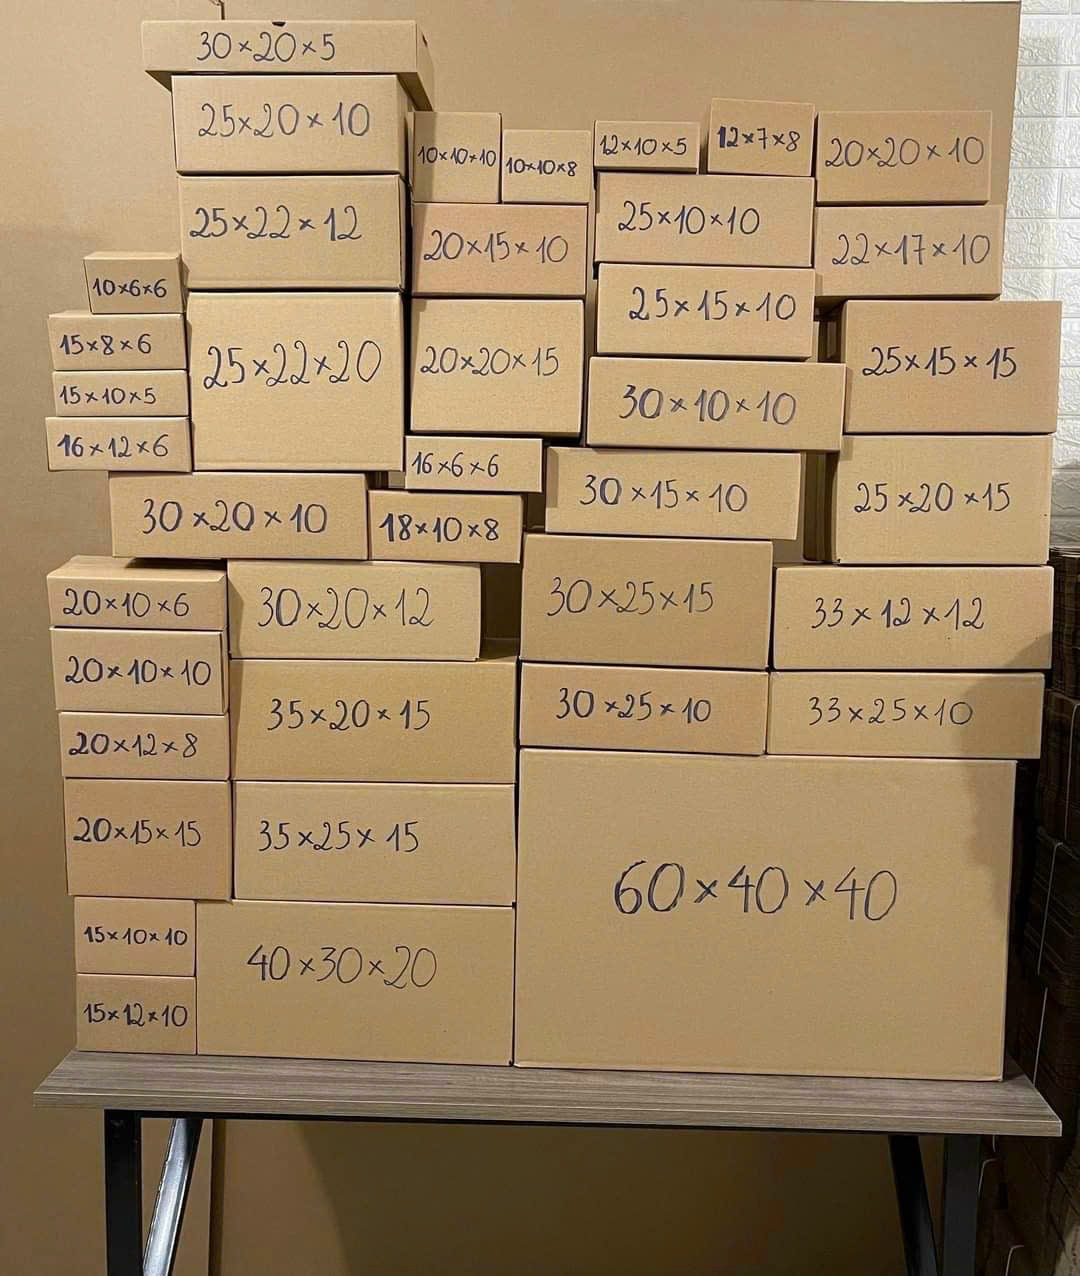 30×20×5
25×20×10
10×10×10
10×10×8
12×10×5
12×7×8
20×20×10
25×22×12
20×15×10
25×10×10
22×17×10
10×6×6
25×15×10
15×8×6
25×22×20
20×20×15
25×15×15
15×10×5
30×10×10
16×12×6
16×6×6
30×15×10
25×20×15
30×20×10
18×10×8
20×10×6
30×20×12
30×25×15
33×12×12
20×10×10
35×20×15
30×25×10
33×25×10
20×12×8
20×15×15
35×25×15
60×40×40
15×10×10
40×30×20
15×12×10